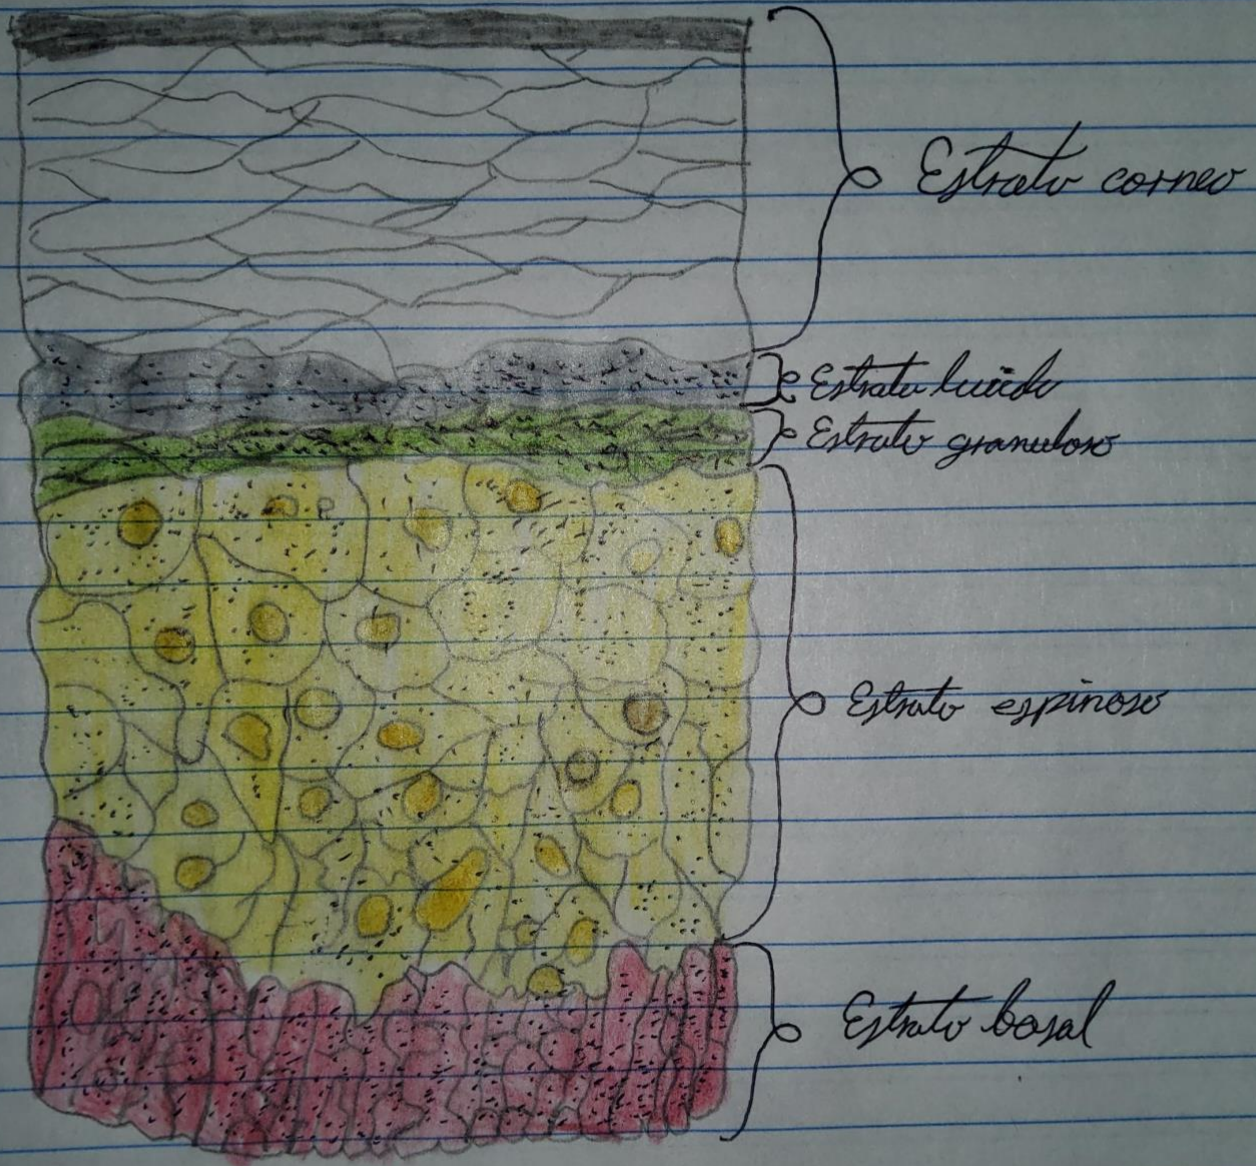 Estrato corneo
Estrato lucido
Estrato granuloso
Estrato espinoso
Estrato basal